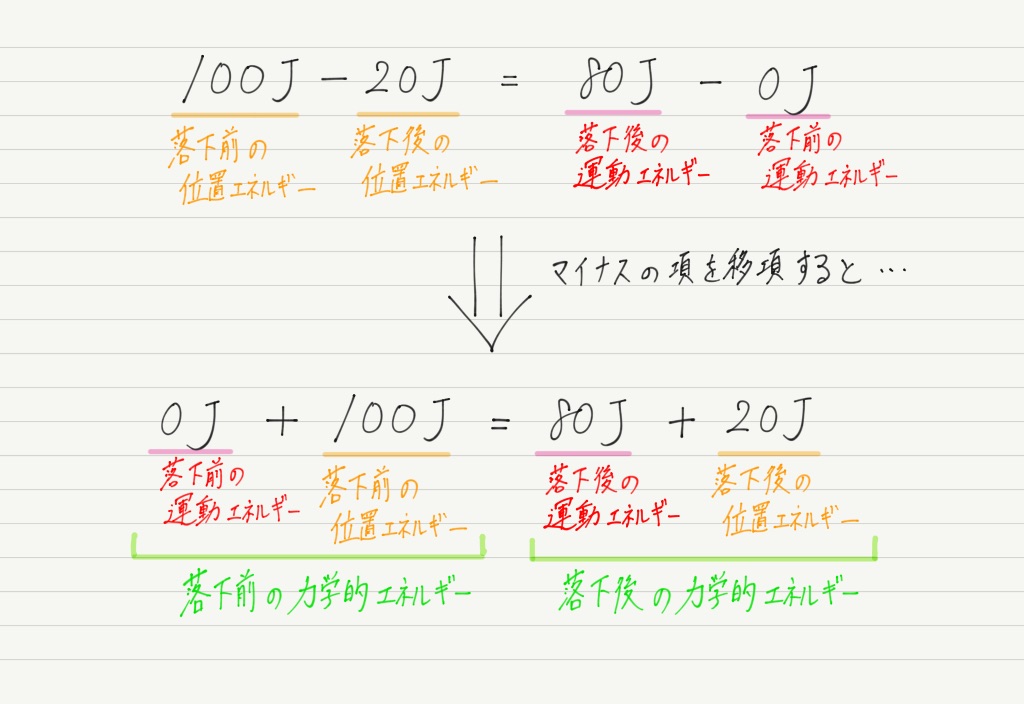 100J − 20J = 80J − 0J
落下前の 落下後の 落下後の 落下前の
位置エネルギー 位置エネルギー 運動エネルギー 運動エネルギー
マイナスの項を移項すると…
0J + 100J = 80J + 20J
落下前の 落下前の 落下後の 落下後の
運動エネルギー 位置エネルギー 運動エネルギー 位置エネルギー
落下前の力学的エネルギー 落下後の力学的エネルギー